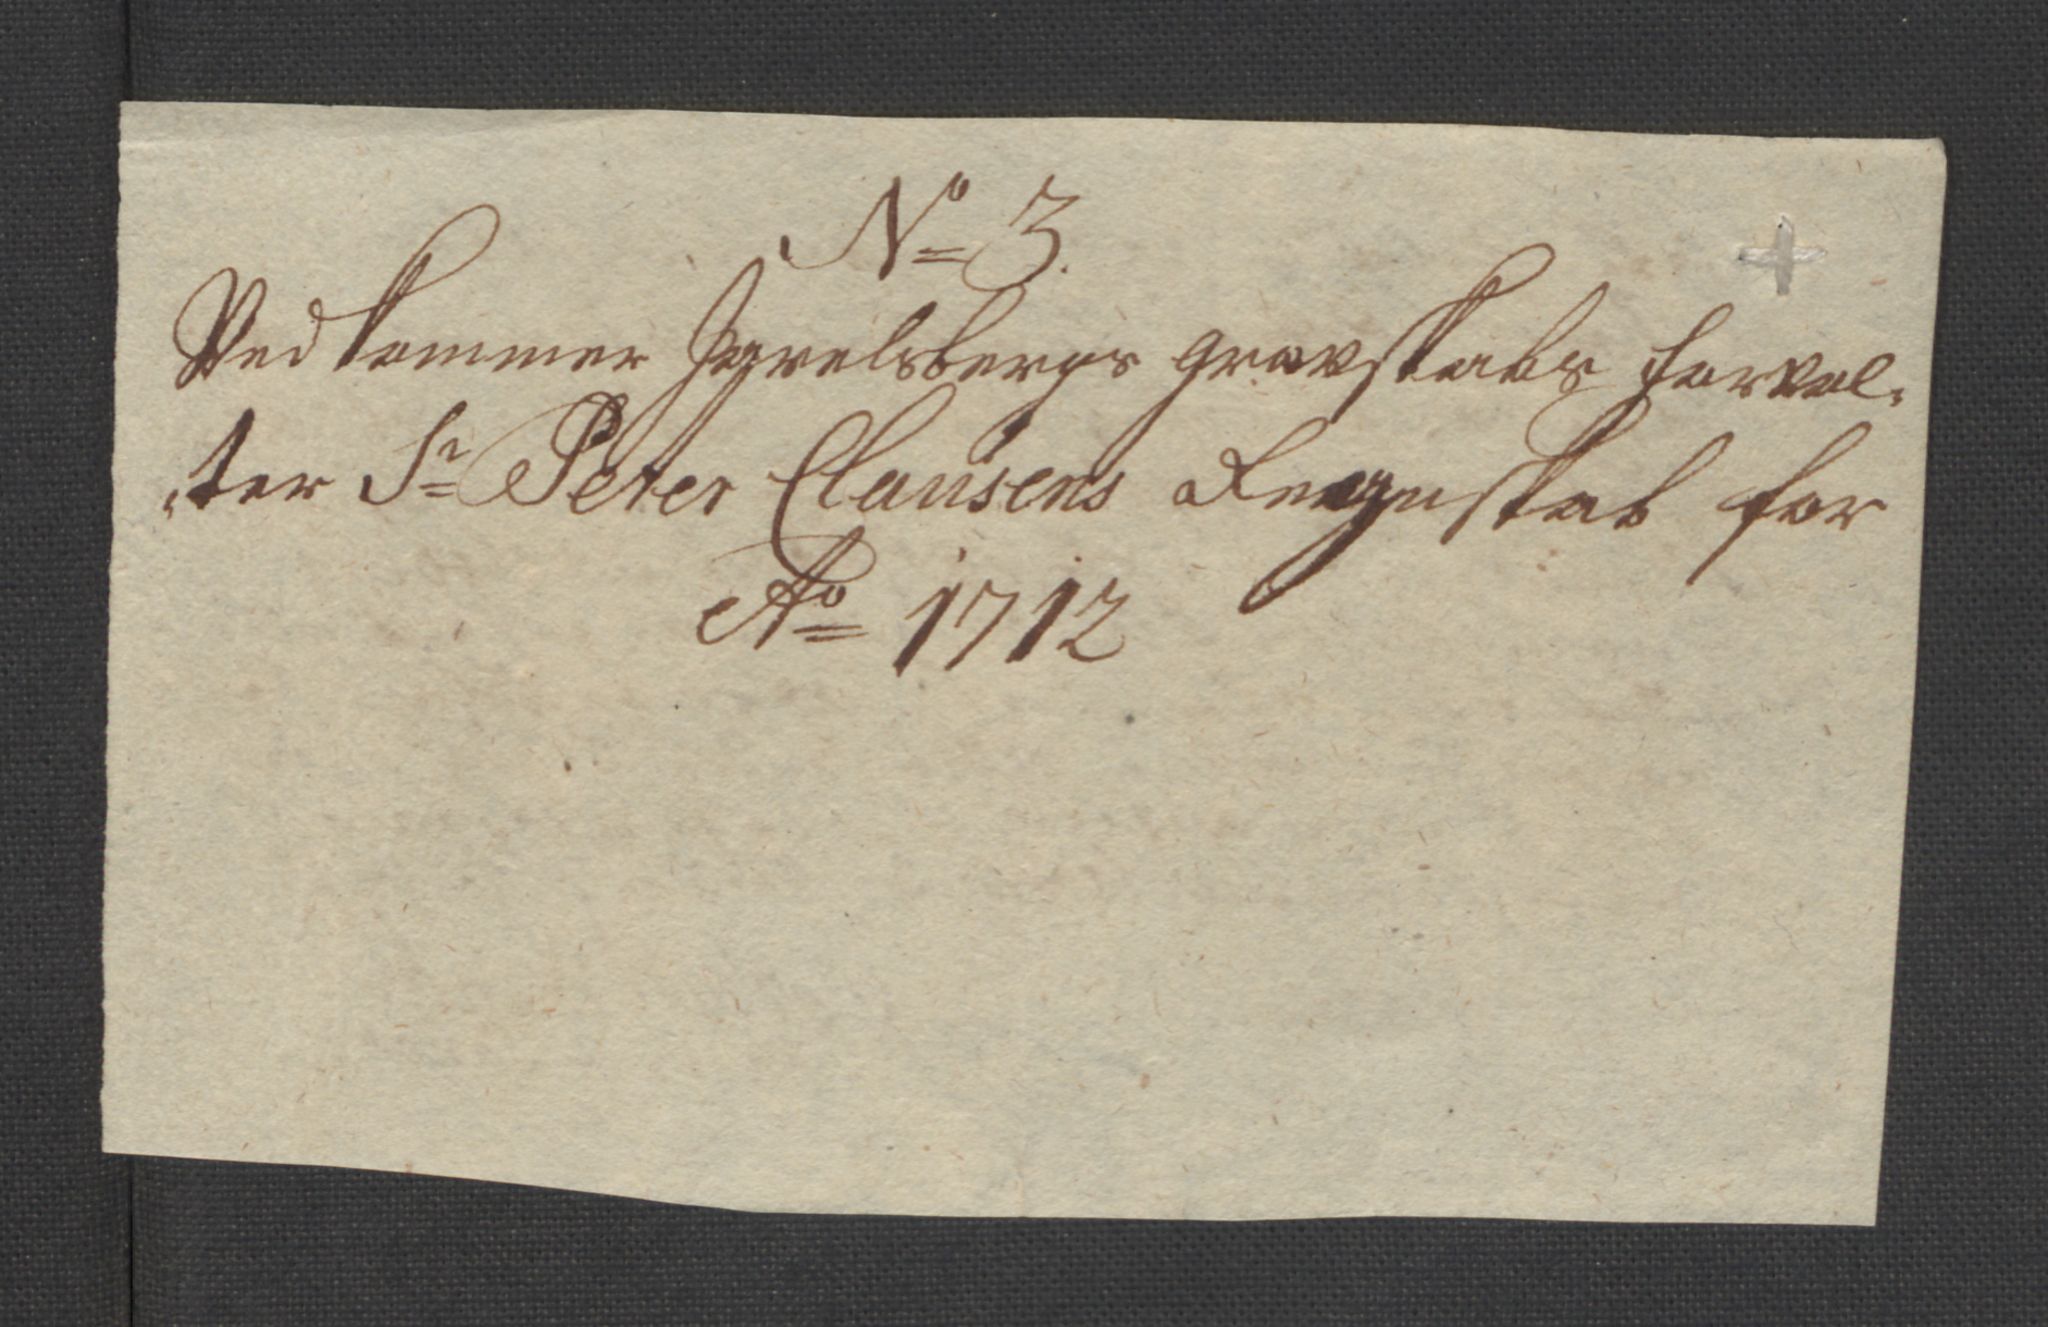 No 3.
Vedkommer Jarelsbergs gravskabs forval-
ter Sr Peter Clausens Regnskab for
Ao 1712